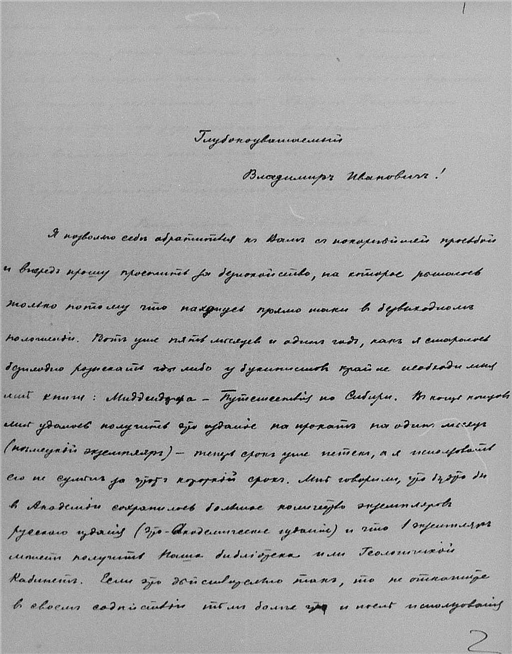 1
Глубокоуважаемый
Владимиръ Ивановичъ!
Я позволю себѣ обратиться къ Вамъ съ покорнѣйшей просьбой
и впередъ прошу простить за безпокойство, на которое рѣшаюсь
только потому что нахожусь прямо таки в безвыходномъ
положеніи. Вотъ уже пять мѣсяцев и одинъ годъ, какъ я стараюсь
безплодно розыскать гдѣ либо у букинистов крайне необходимыя
мнѣ книги: Миддендорфа – Путешествія по Сибири. В концѣ концовъ
мнѣ удалось получить это изданіе на прокатъ на один мѣсяц
(нѣмецкій экземпляръ) – теперь срокъ уже истекъ, и я использовать
его не сумѣлъ за этотъ короткій срокъ. Мнѣ говорили, что будто бы
в Академіи сохранилось большое количество экземпляровъ
русскаго изданія (это Академическое изданіе) и что 1 экземпляръ
можетъ получить Наша библіотека или Геологическій
Кабинетъ. Если это дѣйствительно такъ, то не откажите
в своемъ содѣйствіи тѣмъ болѣе что и послѣ использованія
2